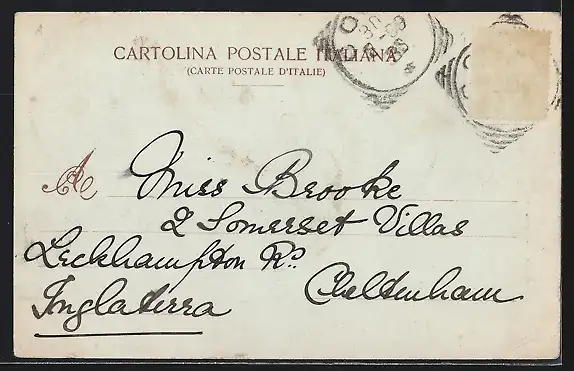 CARTOLINA POSTALE ITALIANA
(CARTE POSTALE D'ITALIE)
A
Miss Brooke
2 Somerset Villas
Leckhampton Rd.
Cheltenham
Inglaterra